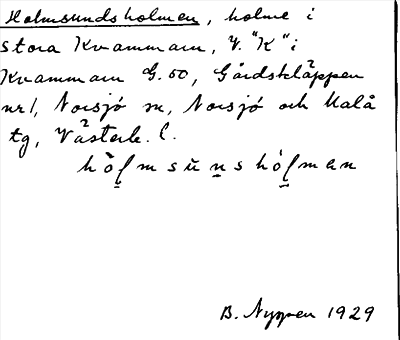 Holmsundsholmen, holme i
Stora Kvammarn, V. "K" i
Kvammarn G. 50, Gårdskläppen
nr 1, Norsjö sn, Norsjö och Malå
tg, Västerb. l.
B. Nyppen 1929